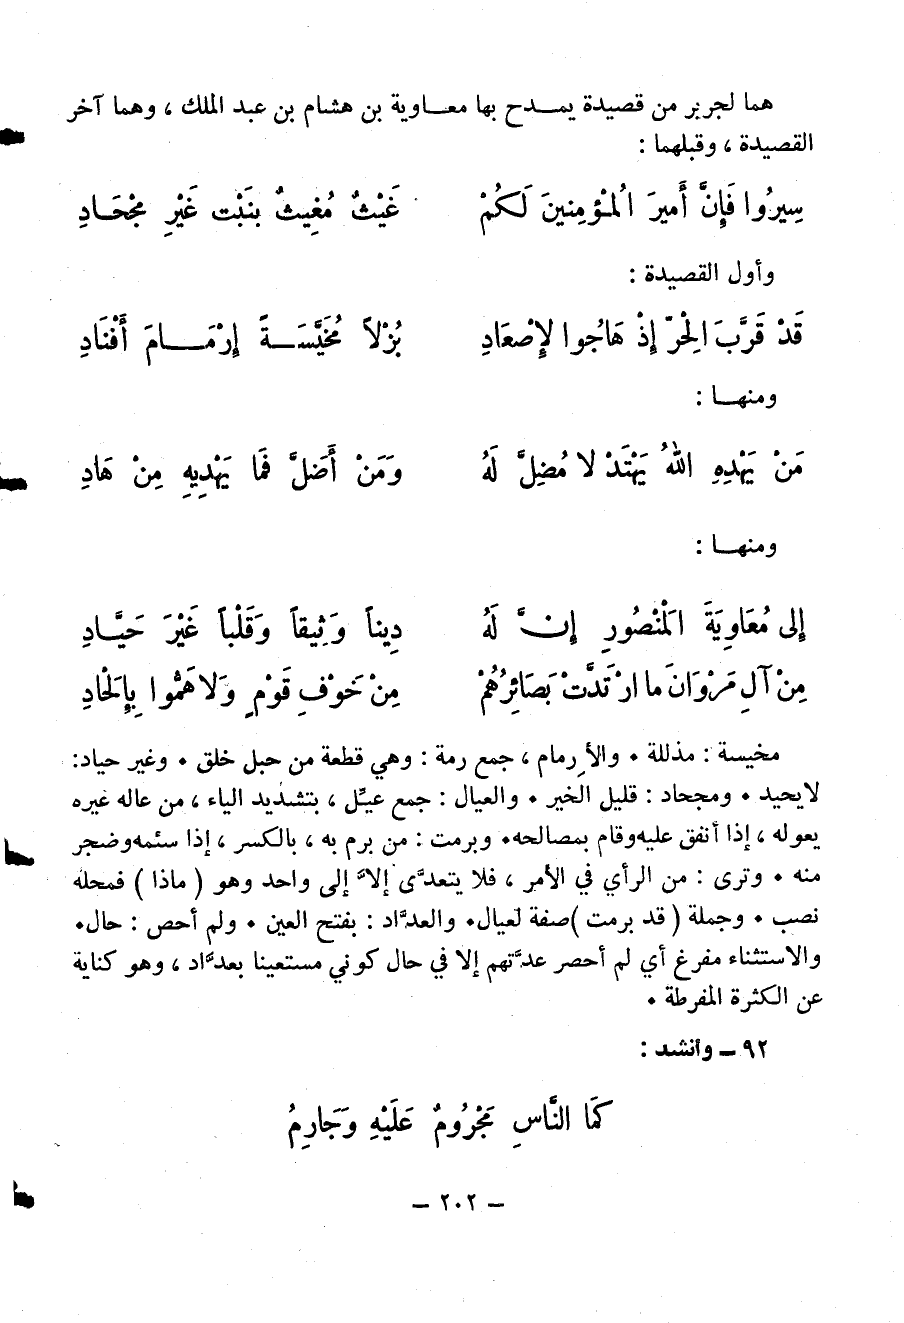 هما لجرير من قصيدة يمـــدح بها معـاوية بن هشام بن عبد الملك ، وهما آخر
القصيدة ، وقبلهما :
سِيرُوا فَإِنَّ أَمِيرَ الْمُؤْمِنِينَ لَكُمْ غَيْثٌ مُغِيثٌ بِنَبْتٍ غَيْرِ مِجْحَـادِ
وأول القصيدة :
قَدْ قَرَّبَ الحَيّ إِذْ هَاجُوا لإِصْعَادِ بُزْلاً مُخَيَّسَـــةً إِرْمَـــامَ أَقْنَادِ
ومنهـا :
مَنْ يَهْدِهِ اللهُ يَهْتَدْ لا مُضِلَّ لَهُ وَمَنْ أَضَلَّ فَمَا يَهْدِيهِ مِنْ هَادِ
ومنهـا :
إلى مُعَاوِيَةَ المَنْصُورِ إِنَّ لَهُ دِيناً وَثِيقاً وَقَلْباً غَيْرَ حَيَّـادِ
مِنْ آلِ مَرْوَانَ ما ارْتَدَّتْ بَصَائِرُهُمْ مِنْ خَوْفِ قَوْمٍ وَلا هَمُّوا بِإِلْحَادِ
مخيسة : مذللة ٠ والأرمام ، جمع رمة : وهي قطعة من حبل خلق ٠ وغير حياد:
لايحيد ٠ ومجحاد : قليل الخير ٠ والعيال : جمع عيِّل ، بتشديد الياء ، من عاله غيره
يعوله ، إذا أنفق عليه وقام بمصالحه٠ وبرمت : من برم به ، بالكسر ، إذا سئمه وضجر
منه ٠ وترى : من الرأي في الأمر ، فلا يتعدَّى إلاَّ إلى واحد وهو ( ماذا ) فمحله
نصب ٠ وجملة ( قد برمت )صفة لعيال٠ والعدَّاد : بفتح العين ٠ ولم أحص : حال٠
والاستثناء مفرغ أي لم أحصر عدَّتهم إلا في حال كوني مستعينا بعدَّاد ، وهو كناية
عن الكثرة المفرطة ٠
٩٢ – وأنشد :
كَمَا النَّاسِ مَجْرُومٌ عَلَيْهِ وَجَارِمُ
– ٢٠٢ –